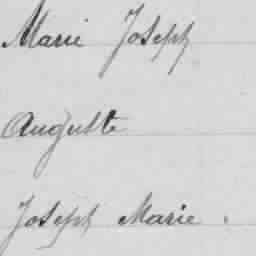 Marie Joseph
Auguste
Joseph Marie.